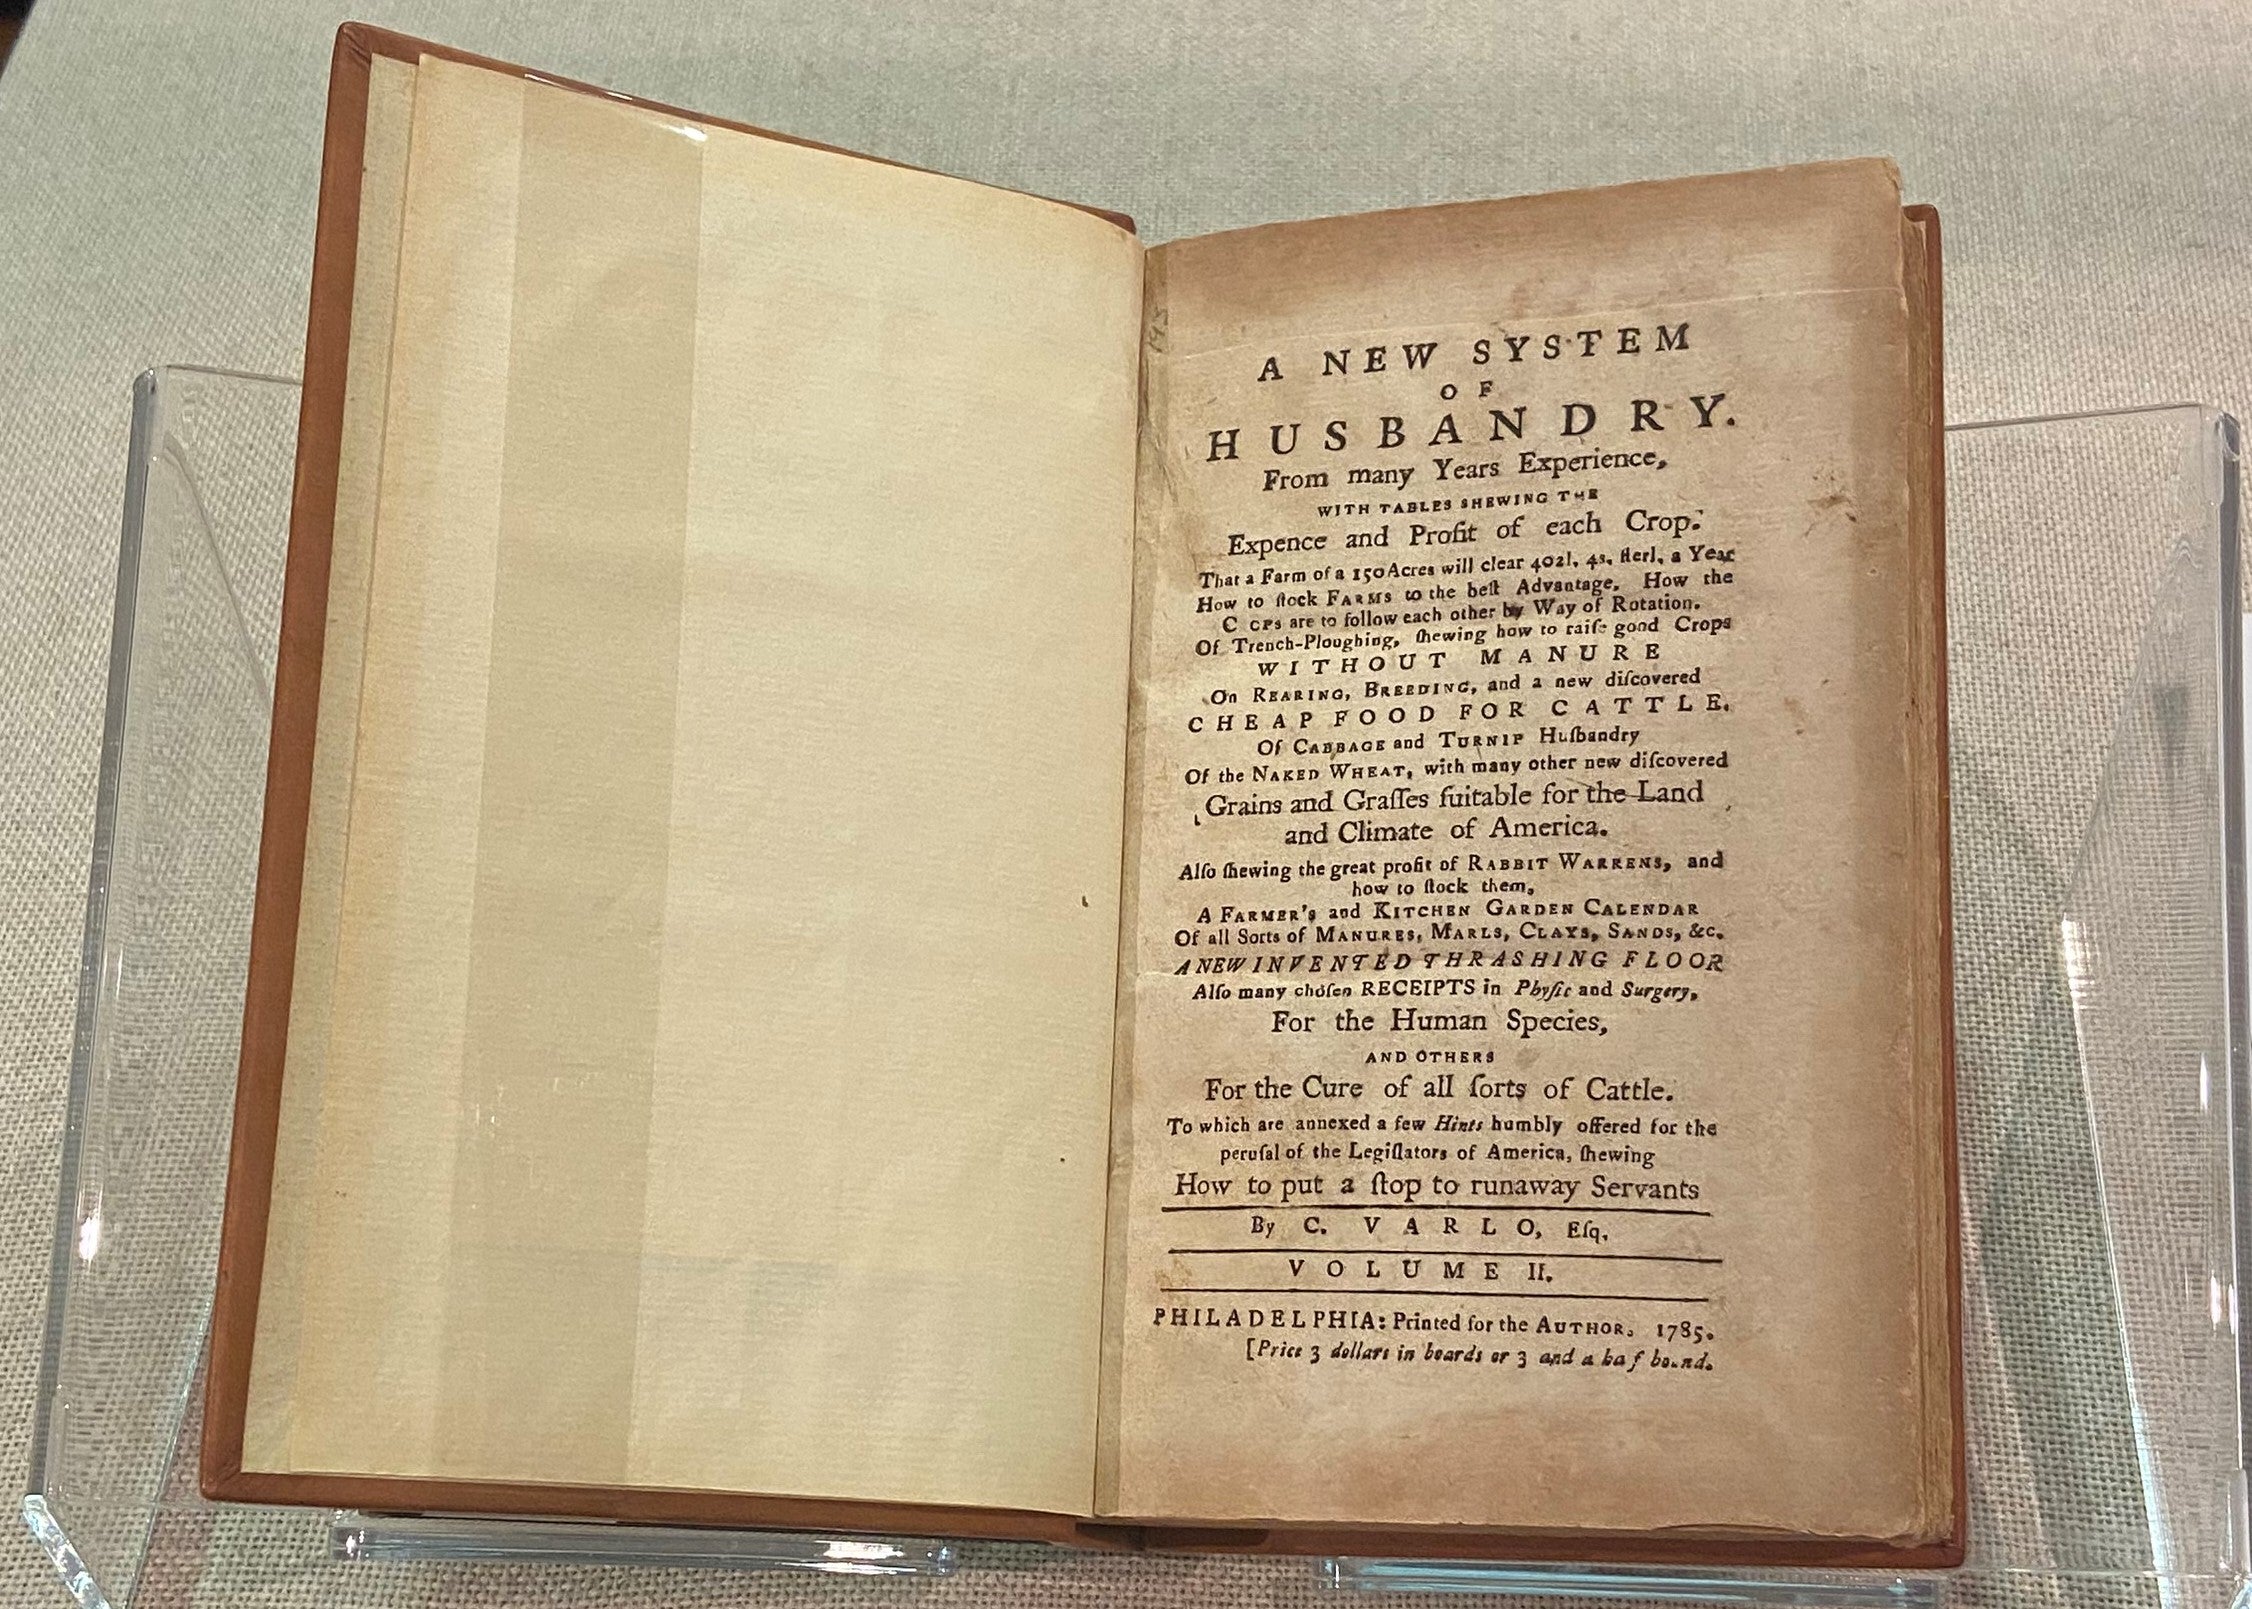 A NEW SYSTEM
OF
HUSBANDRY.
From many Years Experience,
WITH TABLES SHEWING THE
Expence and Profit of each Crop.
That a Farm of a 150 Acres will clear 402l. 4s. ſterl. a Year
How to ſtock FARMS to the beſt Advantage. How the
C OPS are to follow each other by Way of Rotation.
Of Trench-Ploughing, ſhewing how to raiſe good Crops
WITHOUT MANURE
On REARING, BREEDING, and a new diſcovered
CHEAP FOOD FOR CATTLE.
Of CABBAGE and TURNIP Huſbandry
Of the NAKED WHEAT, with many other new diſcovered
Grains and Graſſes ſuitable for the Land
and Climate of America.
Alſo ſhewing the great profit of RABBIT WARRENS, and
how to ſtock them,
A FARMER's and KITCHEN GARDEN CALENDAR
Of all Sorts of MANURES, MARLS, CLAYS, SANDS, &c.
A NEW INVENTED THRASHING FLOOR
Alſo many choſen RECEIPTS in Phyſic and Surgery,
For the Human Species,
AND OTHERS
For the Cure of all ſorts of Cattle.
To which are annexed a few Hints humbly offered for the
peruſal of the Legiſlators of America, ſhewing
How to put a ſtop to runaway Servants
By C. VARLO, Eſq.
VOLUME II.
PHILADELPHIA: Printed for the AUTHOR. 1785.
[Price 3 dollars in boards or 3 and a ha f bound.